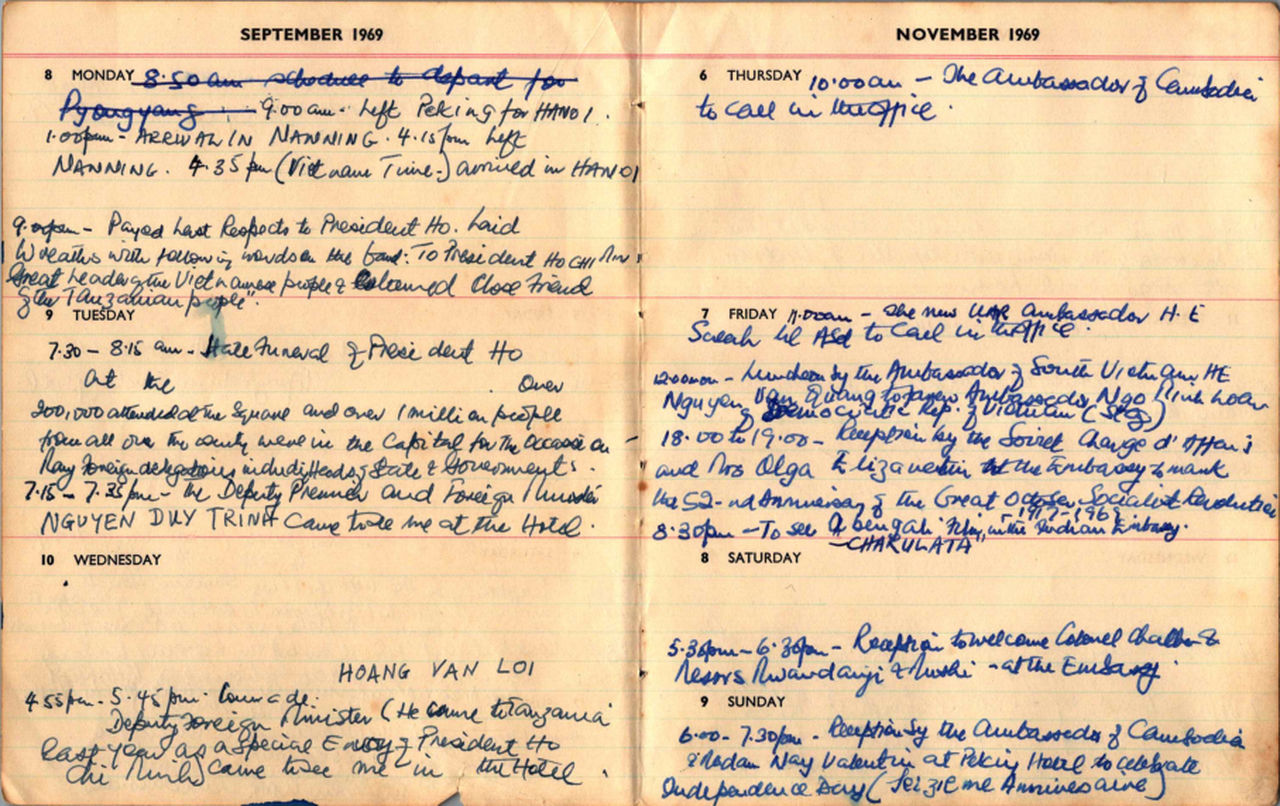 SEPTEMBER 1969
8 MONDAY 8.50am schedule to depart for
Pyongyang 9.00am. Left Peking for HANOI.
1.00pm - ARRIVAL IN NANNING. 4.15pm Left
NANNING. 4.35pm (Vietnam Time.) arrived in HANOI
9.00pm - Payed Last Respects to President Ho. Laid
Wreaths with following words on the Card: To President HO CHI MINH
Great Leader of the Vietnamese people & Esteemed Close Friend
of the Tanzanian people".
9 TUESDAY
7.30 - 8.15 am - State Funeral of President Ho
at the Over
200,000 attended at the Square and over 1 million people
from all over the country were in the Capital for the Occasion
Many Foreign delegations including Heads of State & Governments.
7.15 - 7.35pm - the Deputy Premier and Foreign Minister
NGUYEN DUY TRINH came to see me at the Hotel.
10 WEDNESDAY
HOANG VAN LOI
4.55pm - 5.45pm. Comrade.
Deputy Foreign Minister (He came to Tanzania
last year as a Special Envoy of President Ho
Chi Minh) came to see me in the Hotel.
NOVEMBER 1969
6 THURSDAY 10.00am - The Ambassador of Cambodia
to call in the office.
7 FRIDAY 11.00am - The new UAR Ambassador H.E
Salah El Abd to call in the office.
12.00noon - Luncheon by the Ambassador of South Vietnam HE
Nguyen Van Quang to Ambassador Ngo Minh Loan
of Democratic Rep. of Vietnam
18.00 to 19.00 - Reception by the Soviet Charge d'Affairs
and Mrs Olga Elizavetin at the Embassy to mark
the 52-nd Anniversary of the Great October Socialist Revolution
- 1917-1969.
8.30pm - To see a bengali Film, in the Indian Embassy.
- "CHARULATA"
8 SATURDAY
5.30pm - 6.30pm - Reception to welcome Colonel &
Messrs Mwandanji & Mushi - at the Embassy.
9 SUNDAY
6.00 - 7.30pm - Reception by the Ambassador of Cambodia
& Madam Nay Valentin at Peking Hotel to celebrate
Independence Day (Seizieme Anniversaire)